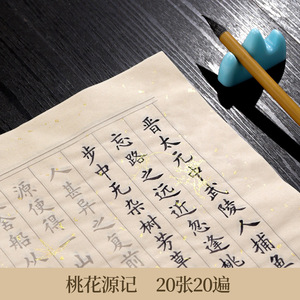 晋太元中武陵人捕鱼
忘路之远近忽逢桃
步中无杂树芳草
人甚异之复前
源便得一山
舍船从
桃花源记 20张20遍